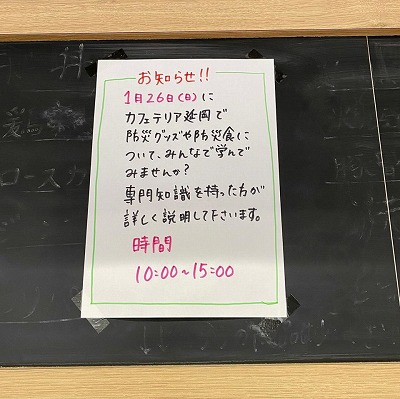 お知らせ!!
1月26日(日)に
カフェテリア延岡で
防災グッズや防災食に
ついて、みんなで学んで
みませんか?
専門知識を持った方が
詳しく説明して下さいます。
時間
10:00~15:00